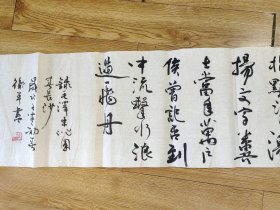 指點江山激
揚文字糞
土當年萬戶
侯曾記否到
中流擊水浪
遏飛舟
錄毛澤東沁園
春長沙